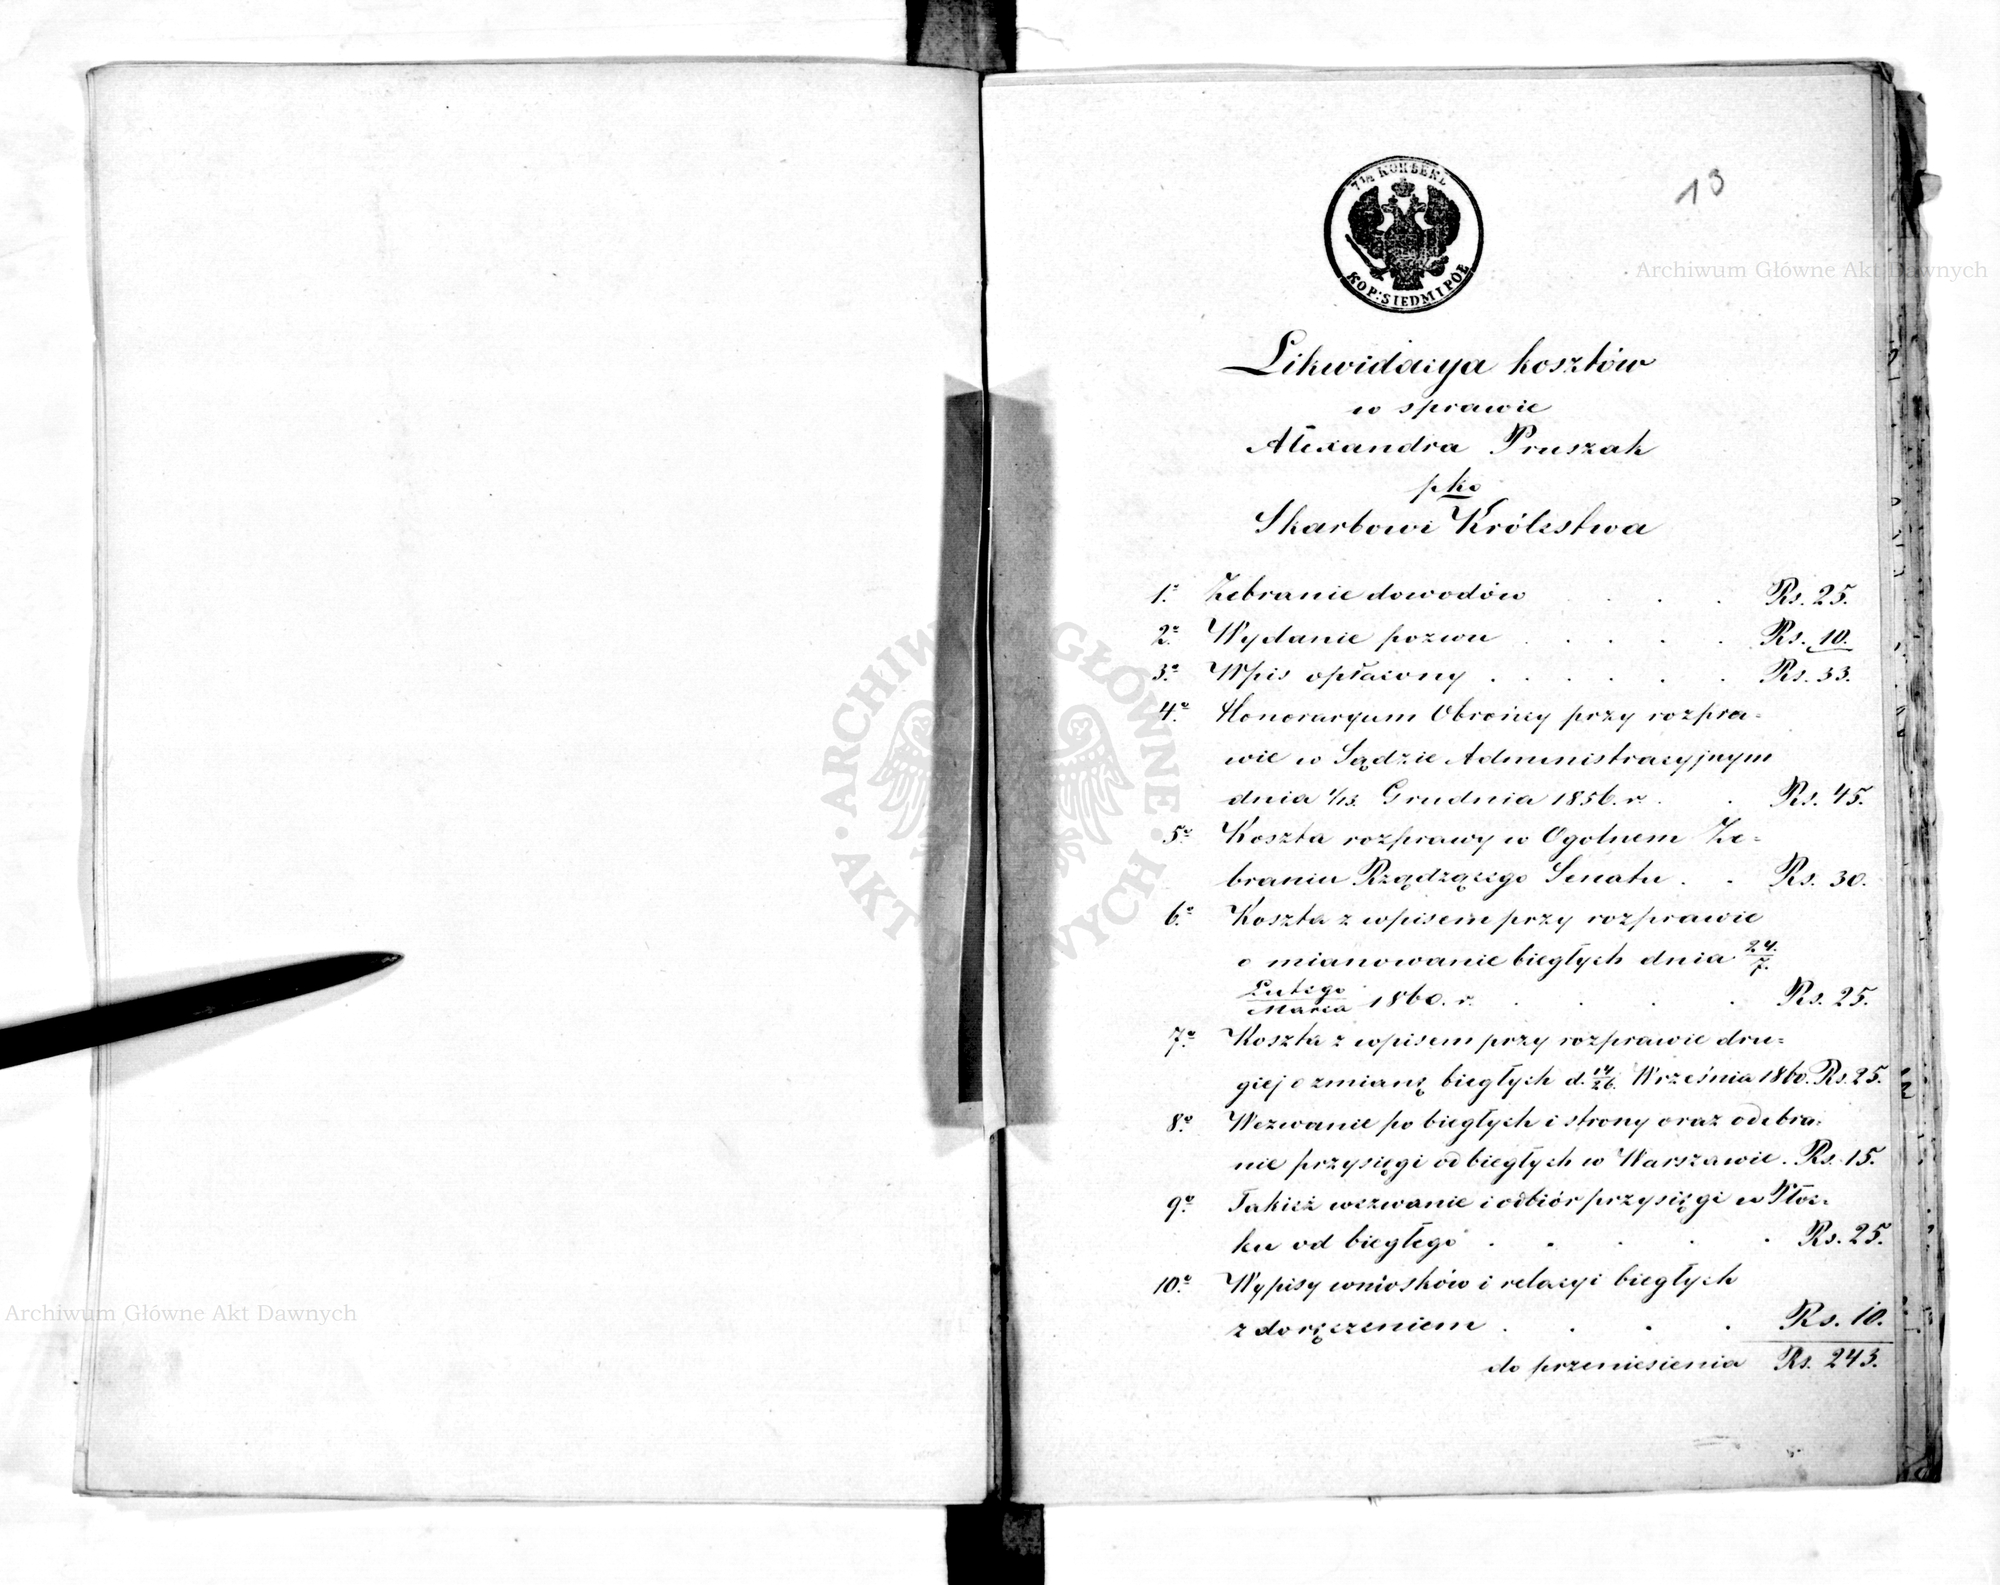 13
7½ КОПѢЕКЪ
KOP: SIEDM I PÓŁ
Likwidacya kosztów
w sprawie
Alexandra Pruszak
pko
Skarbowi Królestwa
1º Zebranie dowodów . . . Rs. 25.
2º Wydanie pozwu . . . . Rs. 10.
3º Wpis opłacony . . . . . Rs. 33.
4º Honoraryum Obrońcy przy rozpra=
wie w Sądzie Administracyjnym
dnia 1/13. Grudnia 1856. r. . . Rs. 45.
5º Koszta rozprawy w Ogolnem Ze=
braniu Rządzącego Senatu . . Rs. 30.
6º Koszta z wpisem przy rozprawie
o mianowanie biegłych dnia 24./7.
Lutego/Marca 1860. r. . . . Rs. 25.
7º Koszta z wpisem przy rozprawie dru=
giej o zmianę biegłych d. 14/26. Września 1860. Rs. 25.
8º Wezwanie po biegłych i strony oraz odebra=
nie przysięgi od biegłych w Warszawie. Rs. 15.
9º Takież wezwanie i odbiór przysięgi w Płoc=
ku od biegłego . . . . . Rs. 25.
10º Wypisy wniosków i relacyi biegłych
z doręczeniem . . . . Rs. 10.
do przeniesienia Rs. 243.
Archiwum Główne Akt Dawnych
Archiwum Główne Akt Dawnych
ARCHIWUM GŁÓWNE AKT DAWNYCH